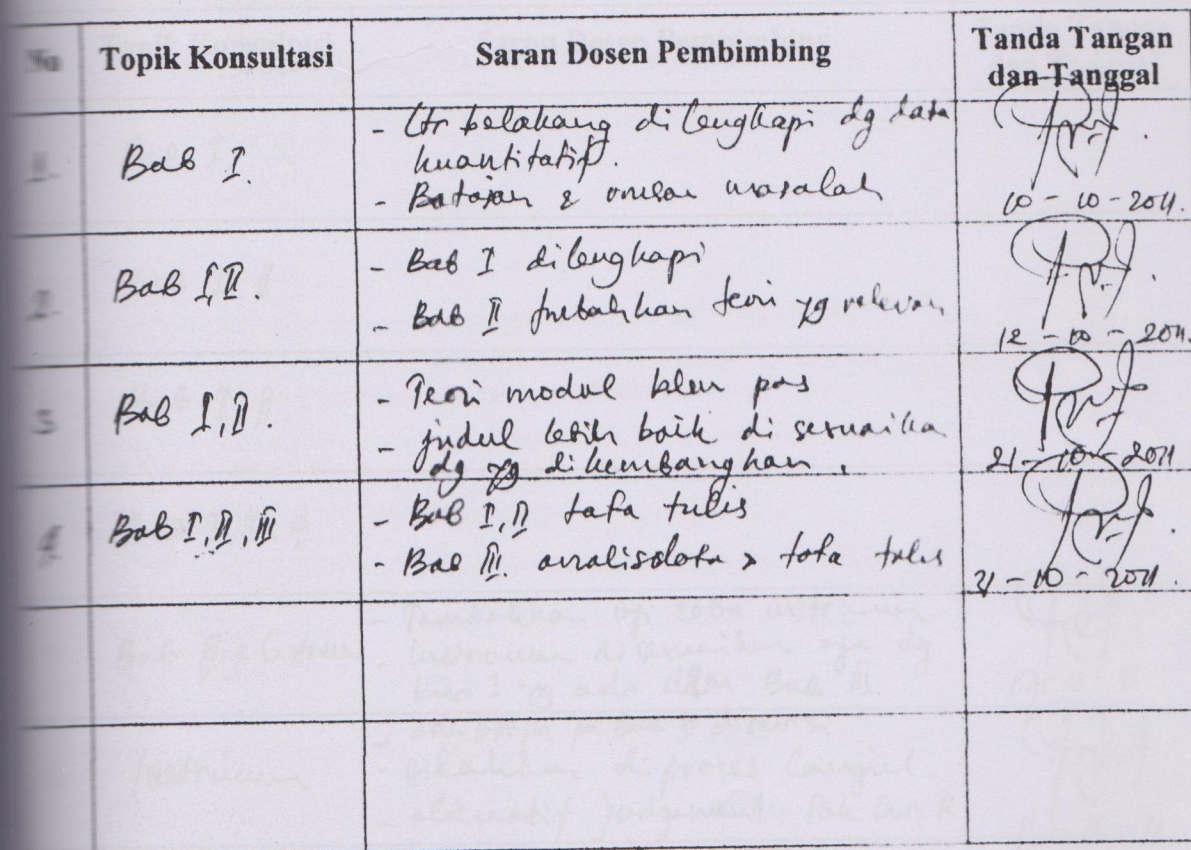 No Topik Konsultasi Saran Dosen Pembimbing Tanda Tangan
dan Tanggal
1. Bab I.
- Ltr belakang dilengkapi dg data
kuantitatif.
- Batasan & masalah
10 - 10 - 2011.
2. Bab I,II.
- Bab I dilengkapi
- Bab II teori yg relevan
12 - 10 - 2011.
3 Bab I,II.
- Teori modul blm pas
- judul lebih baik disesuaika
dg yg dikembangkan.
21 - 10 - 2011
4 Bab I,II,III
- Bab I,II tata tulis
- Bab III. analisdata > tata tulis
21 - 10 - 2011.